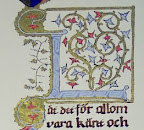 Låt det för allom
vara känt och